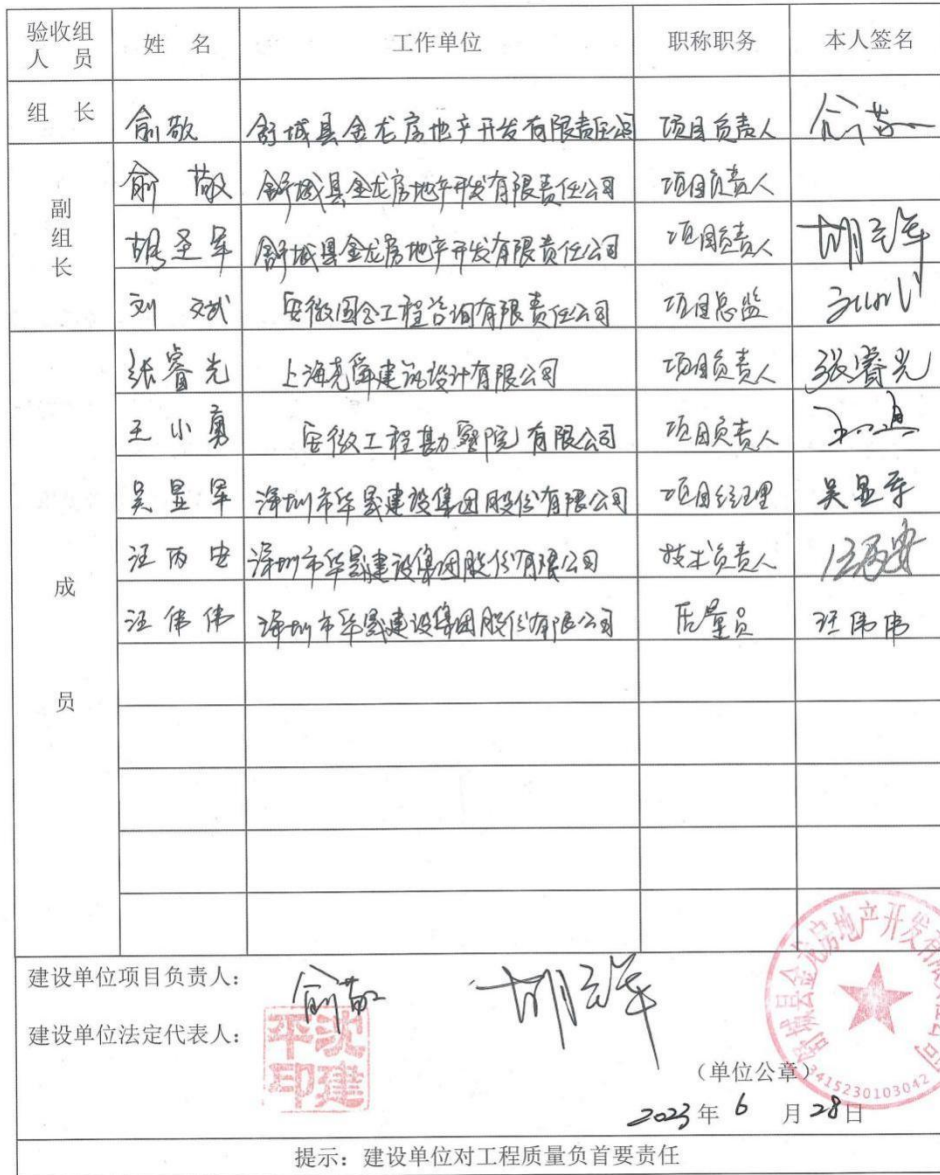 验收组人员 姓 名 工作单位 职称职务 本人签名
组 长 俞敬 舒城县金龙房地产开发有限责任公司 项目负责人 俞敬
副组长 俞敬 舒城县金龙房地产开发有限责任公司 项目负责人
胡圣军 舒城县金龙房地产开发有限责任公司 项目负责人 胡圣军
刘斌 安徽国合工程咨询有限责任公司 项目总监
成员 张睿光 上海尧舜建筑设计有限公司 项目负责人 张睿光
王小勇 安徽工程勘察院有限公司 项目负责人
吴显军 深圳市华晟建设集团股份有限公司 项目经理 吴显军
汪丙安 深圳市华晟建设集团股份有限公司 技术负责人 汪丙安
汪伟伟 深圳市华晟建设集团股份有限公司 质量员 汪伟伟
建设单位项目负责人: 俞敬 胡圣军
建设单位法定代表人: 沈建平印
舒城县金龙房地产开发有限责任公司
3415230103042
(单位公章)
2023年 6 月 28日
提示:建设单位对工程质量负首要责任